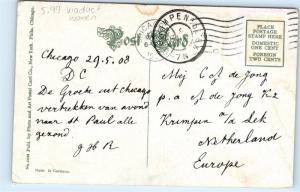 5.99 Viaduct
women
Post Cards
KRIMPEN A/D LEK
7-N
PLACE
POSTAGE
STAMP HERE
DOMESTIC
ONE CENT
FOREIGN
TWO CENTS
Chicago 29.5.08
De Groete uit Chicago
vertrekken van avond
naar St Paul alle
gezond.
Mej C of de Jong
p.a of de Jong Kz
Krimpen a/d Lek
Netherland
Europe
Made in Germany.